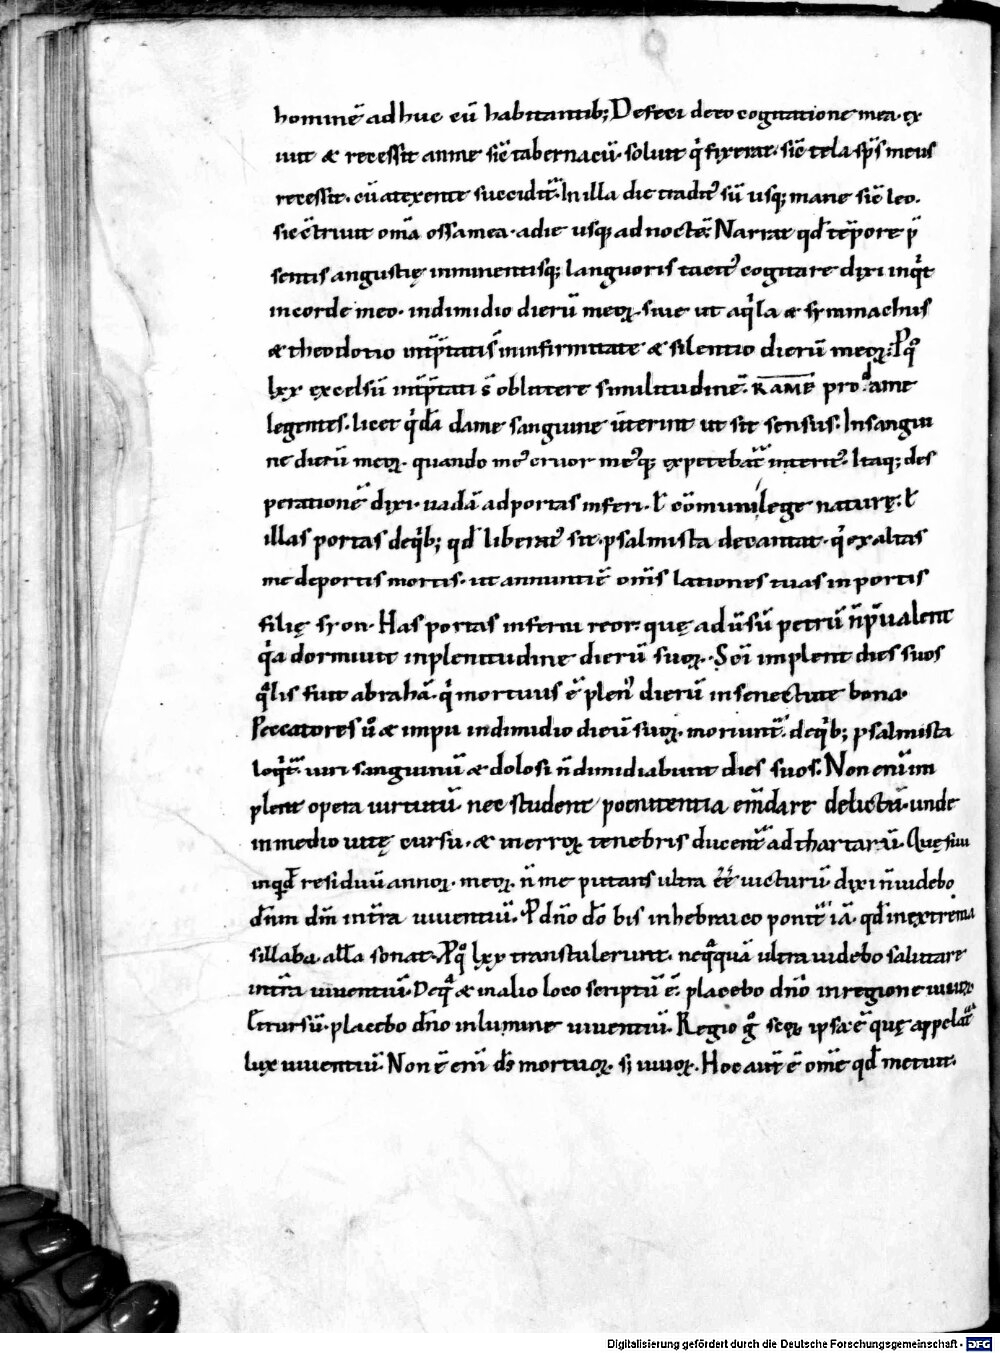 hominē adhuc cū habitantib; Defeci deeo cogitatione mea. ex
iuit & recessit anime sic̄ tabernacū. soluit q̇ fixerat. sic̄ tela sp̄s meus
recessit. cū atexente succidit᷑. In illa die tradit᷒ sū usq; mane sic̄ leo.
sic c̄triuit om̄a ossa mea. adie usq; ad noctē. Narrat qđ tēpore p̄
sentis angustię inminentisq; languoris tacit᷒ cogitare dixi inq̇t
in corde meo. in dimidio dierū meoꝝ. siue ut aq̇la & symmachus
& theodotio int̄p̄tatis̄ in infirmitate & silentio dierū meoꝝ. Pꝗ
lxx excelsū int̄p̄tati s̄ oblitere similitudinē. RAME pro dame
legentes. licet q̇dā dame sanguine ūterint ut sit sensus. In sangui
ne dierū meoꝝ. quando me᷒ cruor me᷒q; expetebat᷑ interit᷒. Itaq; des
perationē dixi. uadā ad portas inferi. ł cōmuni lege naturę. ł
illas portas deq̇b; qđ liberat᷒ sit. psalmista decantat. q̇ exaltas
me deportis mortis. ut annuntiē om̄s lationes tuas in portis
filię syon. Has portas inferni reor. quę aduūsū petrū n̄ p̄ualent
q̇a dormiuit in plenitudine dierū suoꝝ. Sc̄i implent dies suos
q̊lis fuit abrahā. q̇ mortuus ē plen᷒ dierū in senectute bona.
Peccatores ů & impii in dimidio dierū suoꝝ. moriunt᷑. deq̇b; psalmista
loq̇t᷑. uiri sanguinū & dolosi n̄ dimidiabunt dies suos. Non enim im
plent opera uirtutū. nec student poenitentia em̄dare delictū. unde
in medio uitę cursu. & in erroꝝ tenebris ducent᷑ ad thartarū. Quęsiui
inqđ residuū annoꝝ. meoꝝ. n̄ me putans ultra ēē uicturū. dixi n̄ uidebo
dn̄m dm̄ in t̄ra uiuentiū. P dn̄o dō bis in hebraico ponit᷑ ia. qđ in extrema
sillaba. alła sonat. Pꝗ lxx transtulerunt. neq̊quā ultra uidebo salutare
in t̄ra uiuentiū. Deq̊ & in alio loco scriptū ē. placebo dn̄o in regione uiuoꝝ
Et rursū. placebo dn̄o in lumine uiuentiū. Regio g̊ scōꝝ ipsa. ē quę appelat᷑
lux uiuentiū. Non ē eni ds̄ mortuoꝝ. s; uiuoꝝ. Hoc aut̄ ē om̄e qđ metuit.
Digitalisierung gefördert durch die Deutsche Forschungsgemeinschaft - DFG